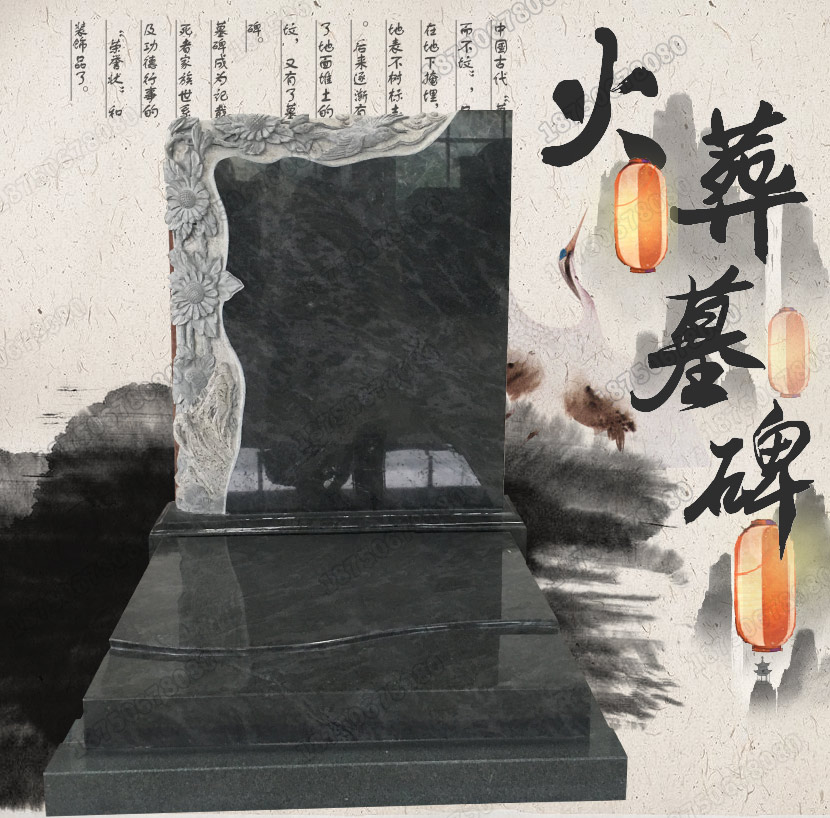 火葬墓碑
中国古代“墓
而不坟”，只
在地下掩埋，
地表不树标志
。后来逐渐有
了地面堆土的
坟，又有了墓
碑。
墓碑成为记载
死者家族世系
及功德行事的
“荣誉状”和
装饰品了。
18750678080